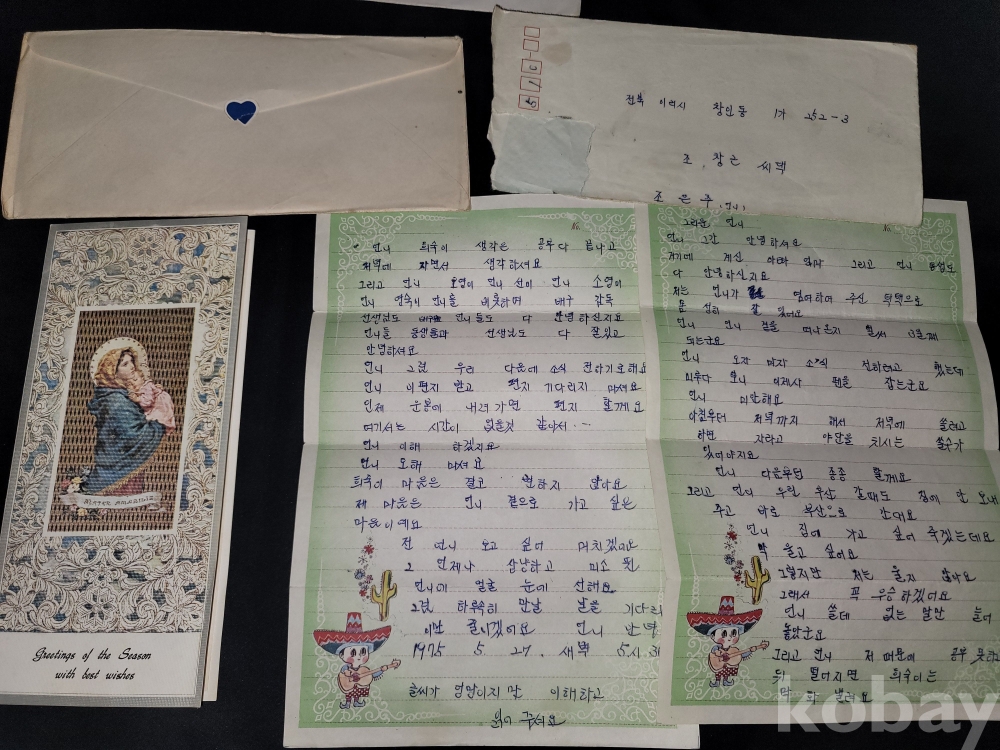 510-
전북 이리시 창인동 1가 252-3
조 창근 씨댁
조 은주 (언니)
그리운 언니
언니 그간 안녕하셔요
거기에 계신 아빠 엄마 그리고 언니 동생도
다 안녕하신지요
저는 언니가 염려하여 주신 덕택으로
몸 성히 잘 있어요
언니 언니 곁을 떠나온지 벌써 13일째
되는군요
언니 오자 마자 소식 전하려고 했는데
미루다 보니 이제사 펜을 잡는군요
언니 미안해요
아침부터 저녁까지 해서 저녁에 쓸려고
하면 자라고 야단을 치시는 쓸수가
있어야지요
언니 다음부턴 종종 할께요
그리고 언니 우린 부산 갈때도 집에 안 보내
주고 바로 부산으로 간대요
언니 집에 가고 싶어 죽겠는데요
막 울고 싶어요
그렇지만 저는 울지 않아요
그래서 꼭 우승하겠어요
언니 쓸데 없는 말만 늘어
놓았군요
그리고 언니 저 때문에 공부 못하고
뒤 떨어지면 희숙이는
막 화 낼려요
언니 희숙이 생각은 공부다 끝나고
저녁에 자면서 생각하셔요
그리고 언니 오영이 언니 선이 언니 소영이
언니 연숙이 언니를 비롯하여 배구 감독
선생님도 언니들도 다 안녕하신지요
언니들 동생들과 선생님도 다 잘있고
안녕하셔요
언니 그럼 우리 다음에 소식 전하기로해요
언니 이편지 받고 편지 기다리지 마셔요
인제 운봉에 내려가면 편지 할께요
여기서는 시간이 없을것 같아서...
언니 이해 하겠지요
언니 오해 마셔요
희숙이 마음은 결코 변하지 않아요
제 마음은 언니 곁으로 가고 싶은
마음이예요
전 언니 보고 싶어 미치겠어요
그 언제나 상냥하고 미소 띤
언니의 얼굴 눈에 선해요
그럼 하루속히 만날 날을 기다리
이만 줄이겠어요 언니 안녕
1975 5. 27. 새벽 5시.31
글씨가 엉망이지만 이해하고
읽어 주셔요
Greetings of the Season
with best wishes
kobay